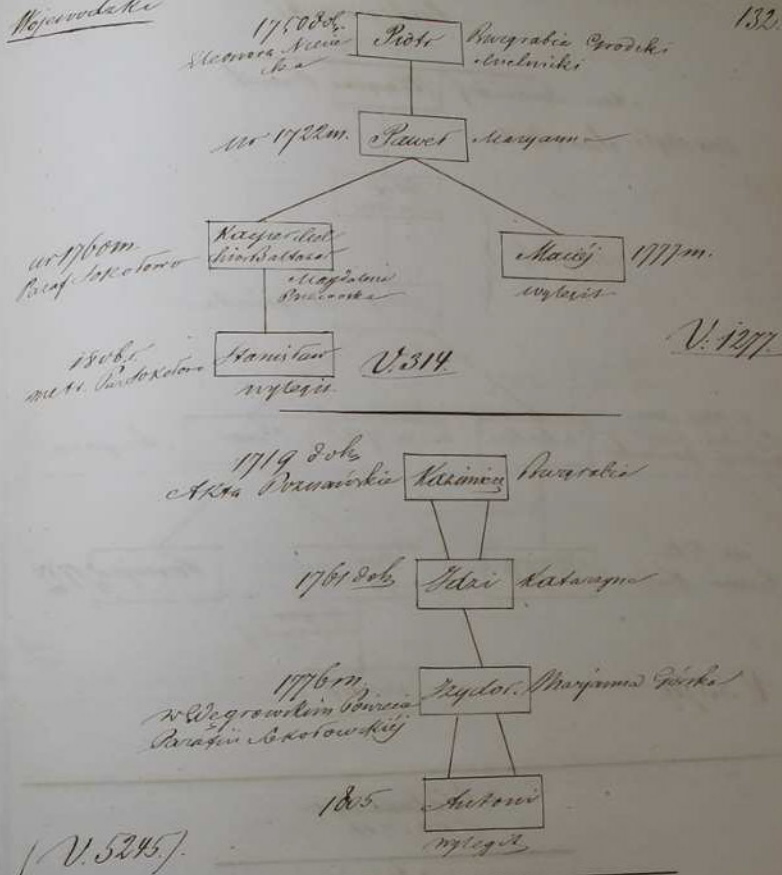 Wojewodzki
132.
1750 dok.
Eleonora
Piotr
Burgrabia Grodzki
Mielnicki
ur 1722 m.
Paweł
Maryanna
ur 1760 m.
Paraf Sokołowo
Kasper Mel
chior Baltazar
Magdalena
Maciéj
1777 m.
wylegit
metr. Par Sokołowo
Stanisław
wylegit
V. 314.
V. 1277.
1719 dok.
Akta Poznańskie
Kazimierz
Burgrabia
1761 dok
Idzi
Katarzyna
1776 m.
w Węgrowskim Powiecie
Parafii Sokołowskiéj
Izydor.
Marjanna Górska
1805.
Antoni
wylegit
(V. 5245).